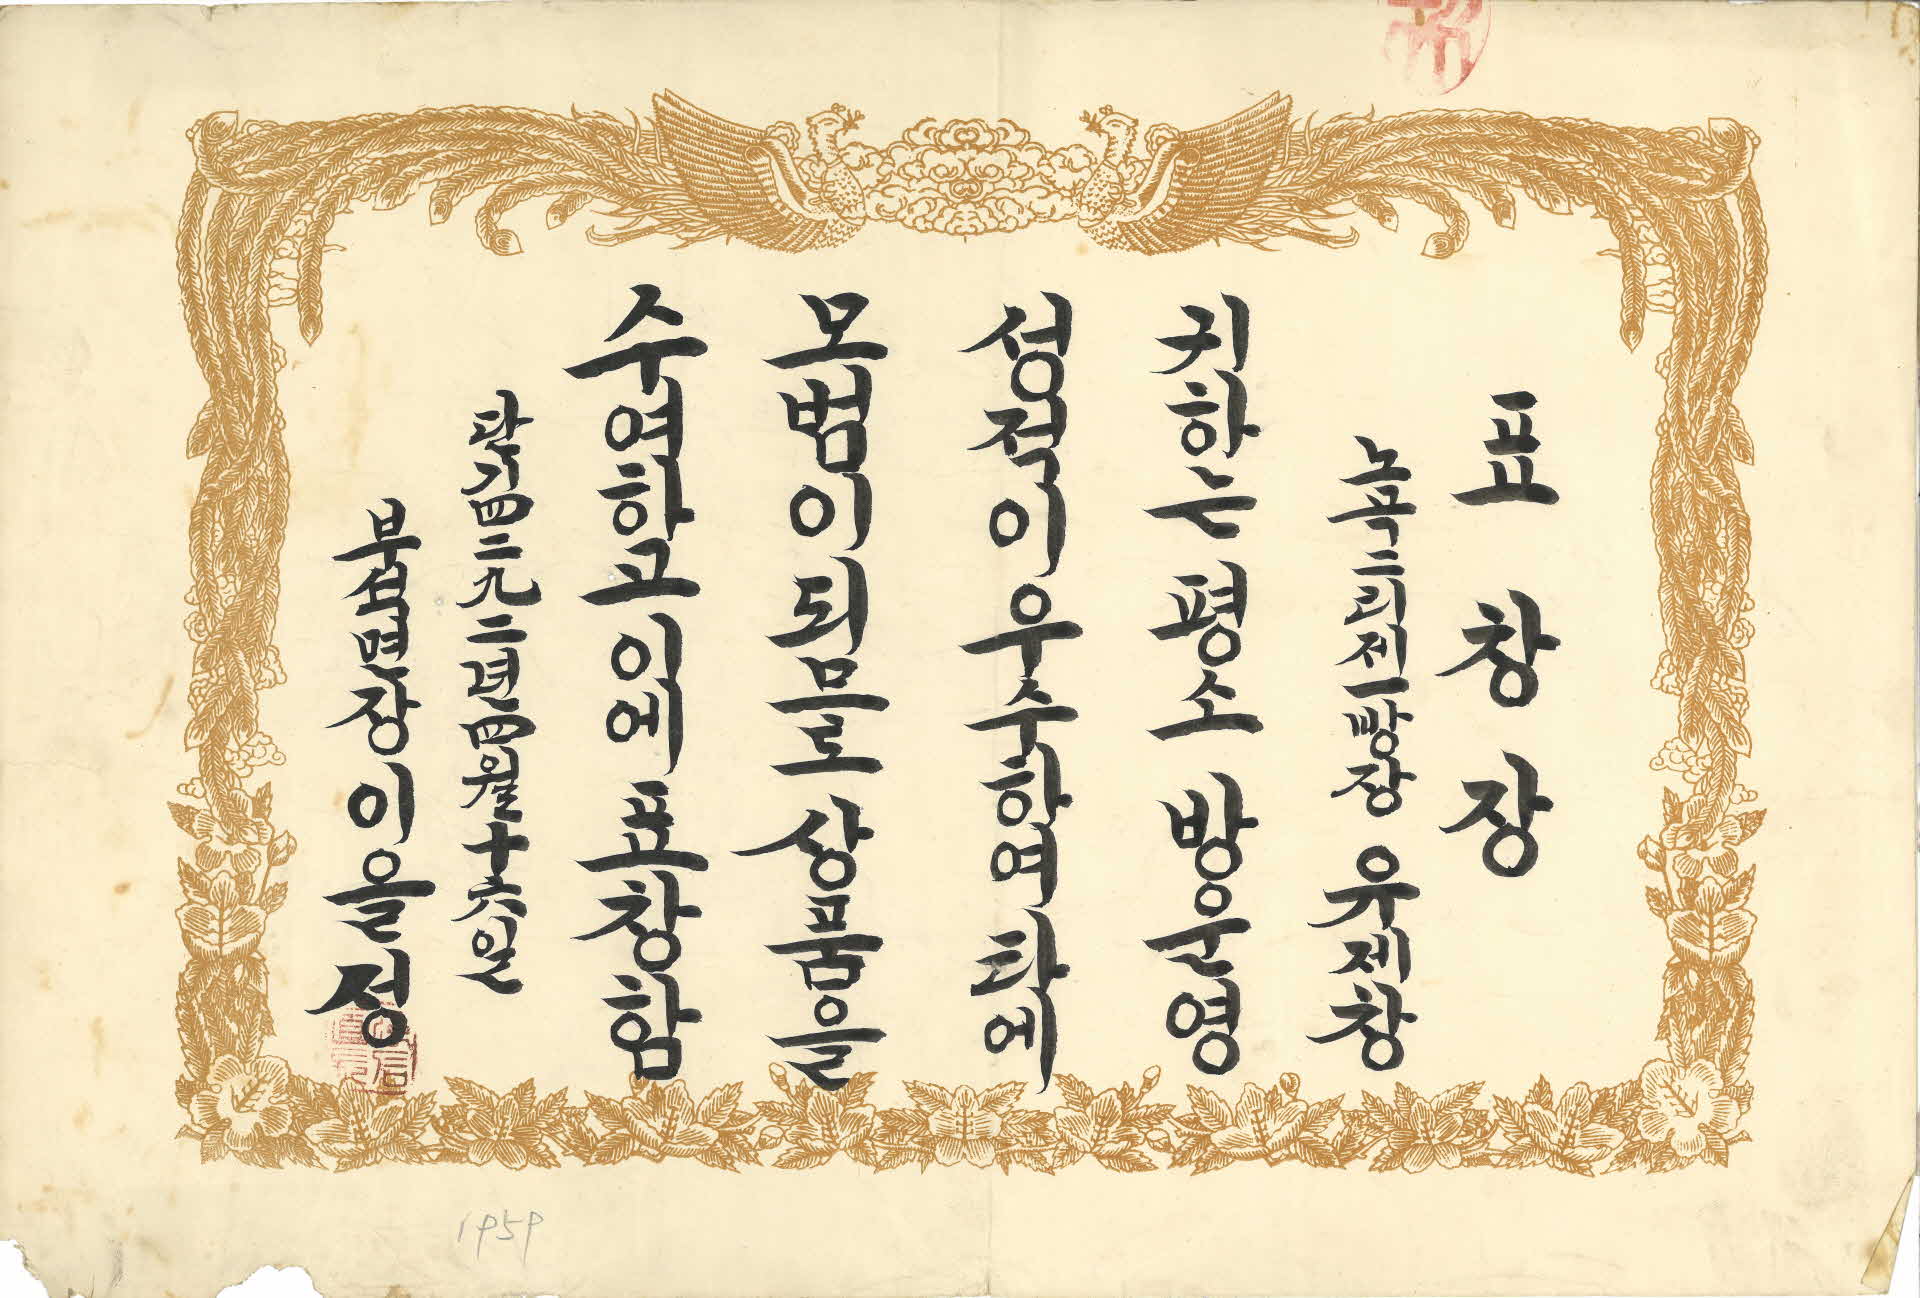 표창장
노폭二리 제一방장 유제창
귀하는 평소 방운영
성적이 우수하여 타에
모범이 되므로 상품을
수여하고 이에 표창함
단기四二九二년 四월 十六일
부석면장 이을정
1959